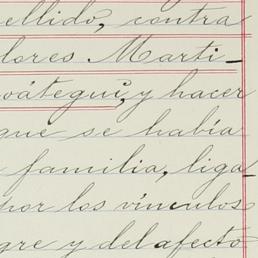 ellido, contra
lores Marti-
oátegui, y hacer
que se había
familia, liga-
por los vínculos
gre y del afecto